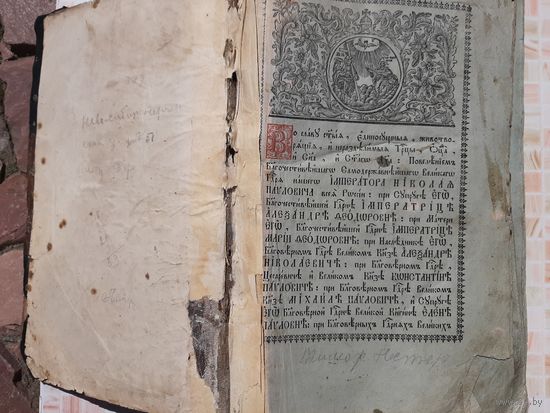 Во славу ст҃ыѧ, є҆диносꙋщныѧ, животво-
рѧщїѧ, и҆ нераздѣлимыѧ Трⷪ҇цы, Ѻ҆ц҃а,
и҆ Сн҃а, и҆ Ст҃агѡ Дх҃а: Повелѣнїемъ
Благочестивѣйшагѡ Самодержавнѣйшагѡ Великагѡ
Гдⷭ҇рѧ нашегѡ ИМПЕРАТОРА НІКОЛАѦ
ПАVЛОВИЧА всеѧ Рѡссїи: при Сꙋпрꙋгѣ ЕГѠ̀,
Благочестивѣйшей Гдⷭ҇рынѣ ИМПЕРАТРИЦѢ
АЛЕѮАНДРѢ ѲЕОДОРОВНѢ: при Матери
ЕГѠ̀, Благочестивѣйшей Гдⷭ҇рынѣ ИМПЕРАТРИЦѢ
МАРІИ ѲЕОДОРОВНѢ: при Наслѣдникѣ ЕГѠ̀,
Благовѣрномъ Гдⷭ҇рѣ Великомъ Кн҃зѣ АЛЕѮАНДРѢ
НІКОЛАЕВИЧѢ: при Благовѣрномъ Гдⷭ҇рѣ,
Цесаревичѣ и҆ Великомъ Кн҃зѣ КѠНСТАНТІНѢ
ПАVЛОВИЧѢ: при Благовѣрномъ Гдⷭ҇рѣ Великомъ
Кн҃зѣ МІХАИЛѢ ПАVЛОВИЧѢ, и҆ Сꙋпрꙋгѣ
ЕГѠ̀ Благовѣрной Гдⷭ҇рынѣ Великой Кнѧгинѣ ЕЛЕНѢ
ПАVЛОВНѢ: при Благовѣрныхъ Гдⷭ҇рынѧхъ Великихъ